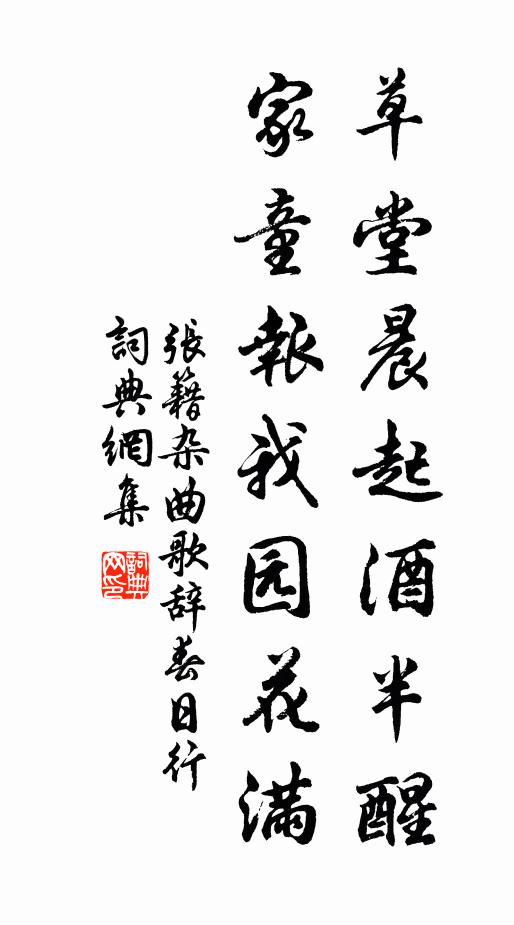 草堂晨起酒半醒
家童報我园花滿
張籍杂曲歌辞春日行
詞典網集
詞典网印